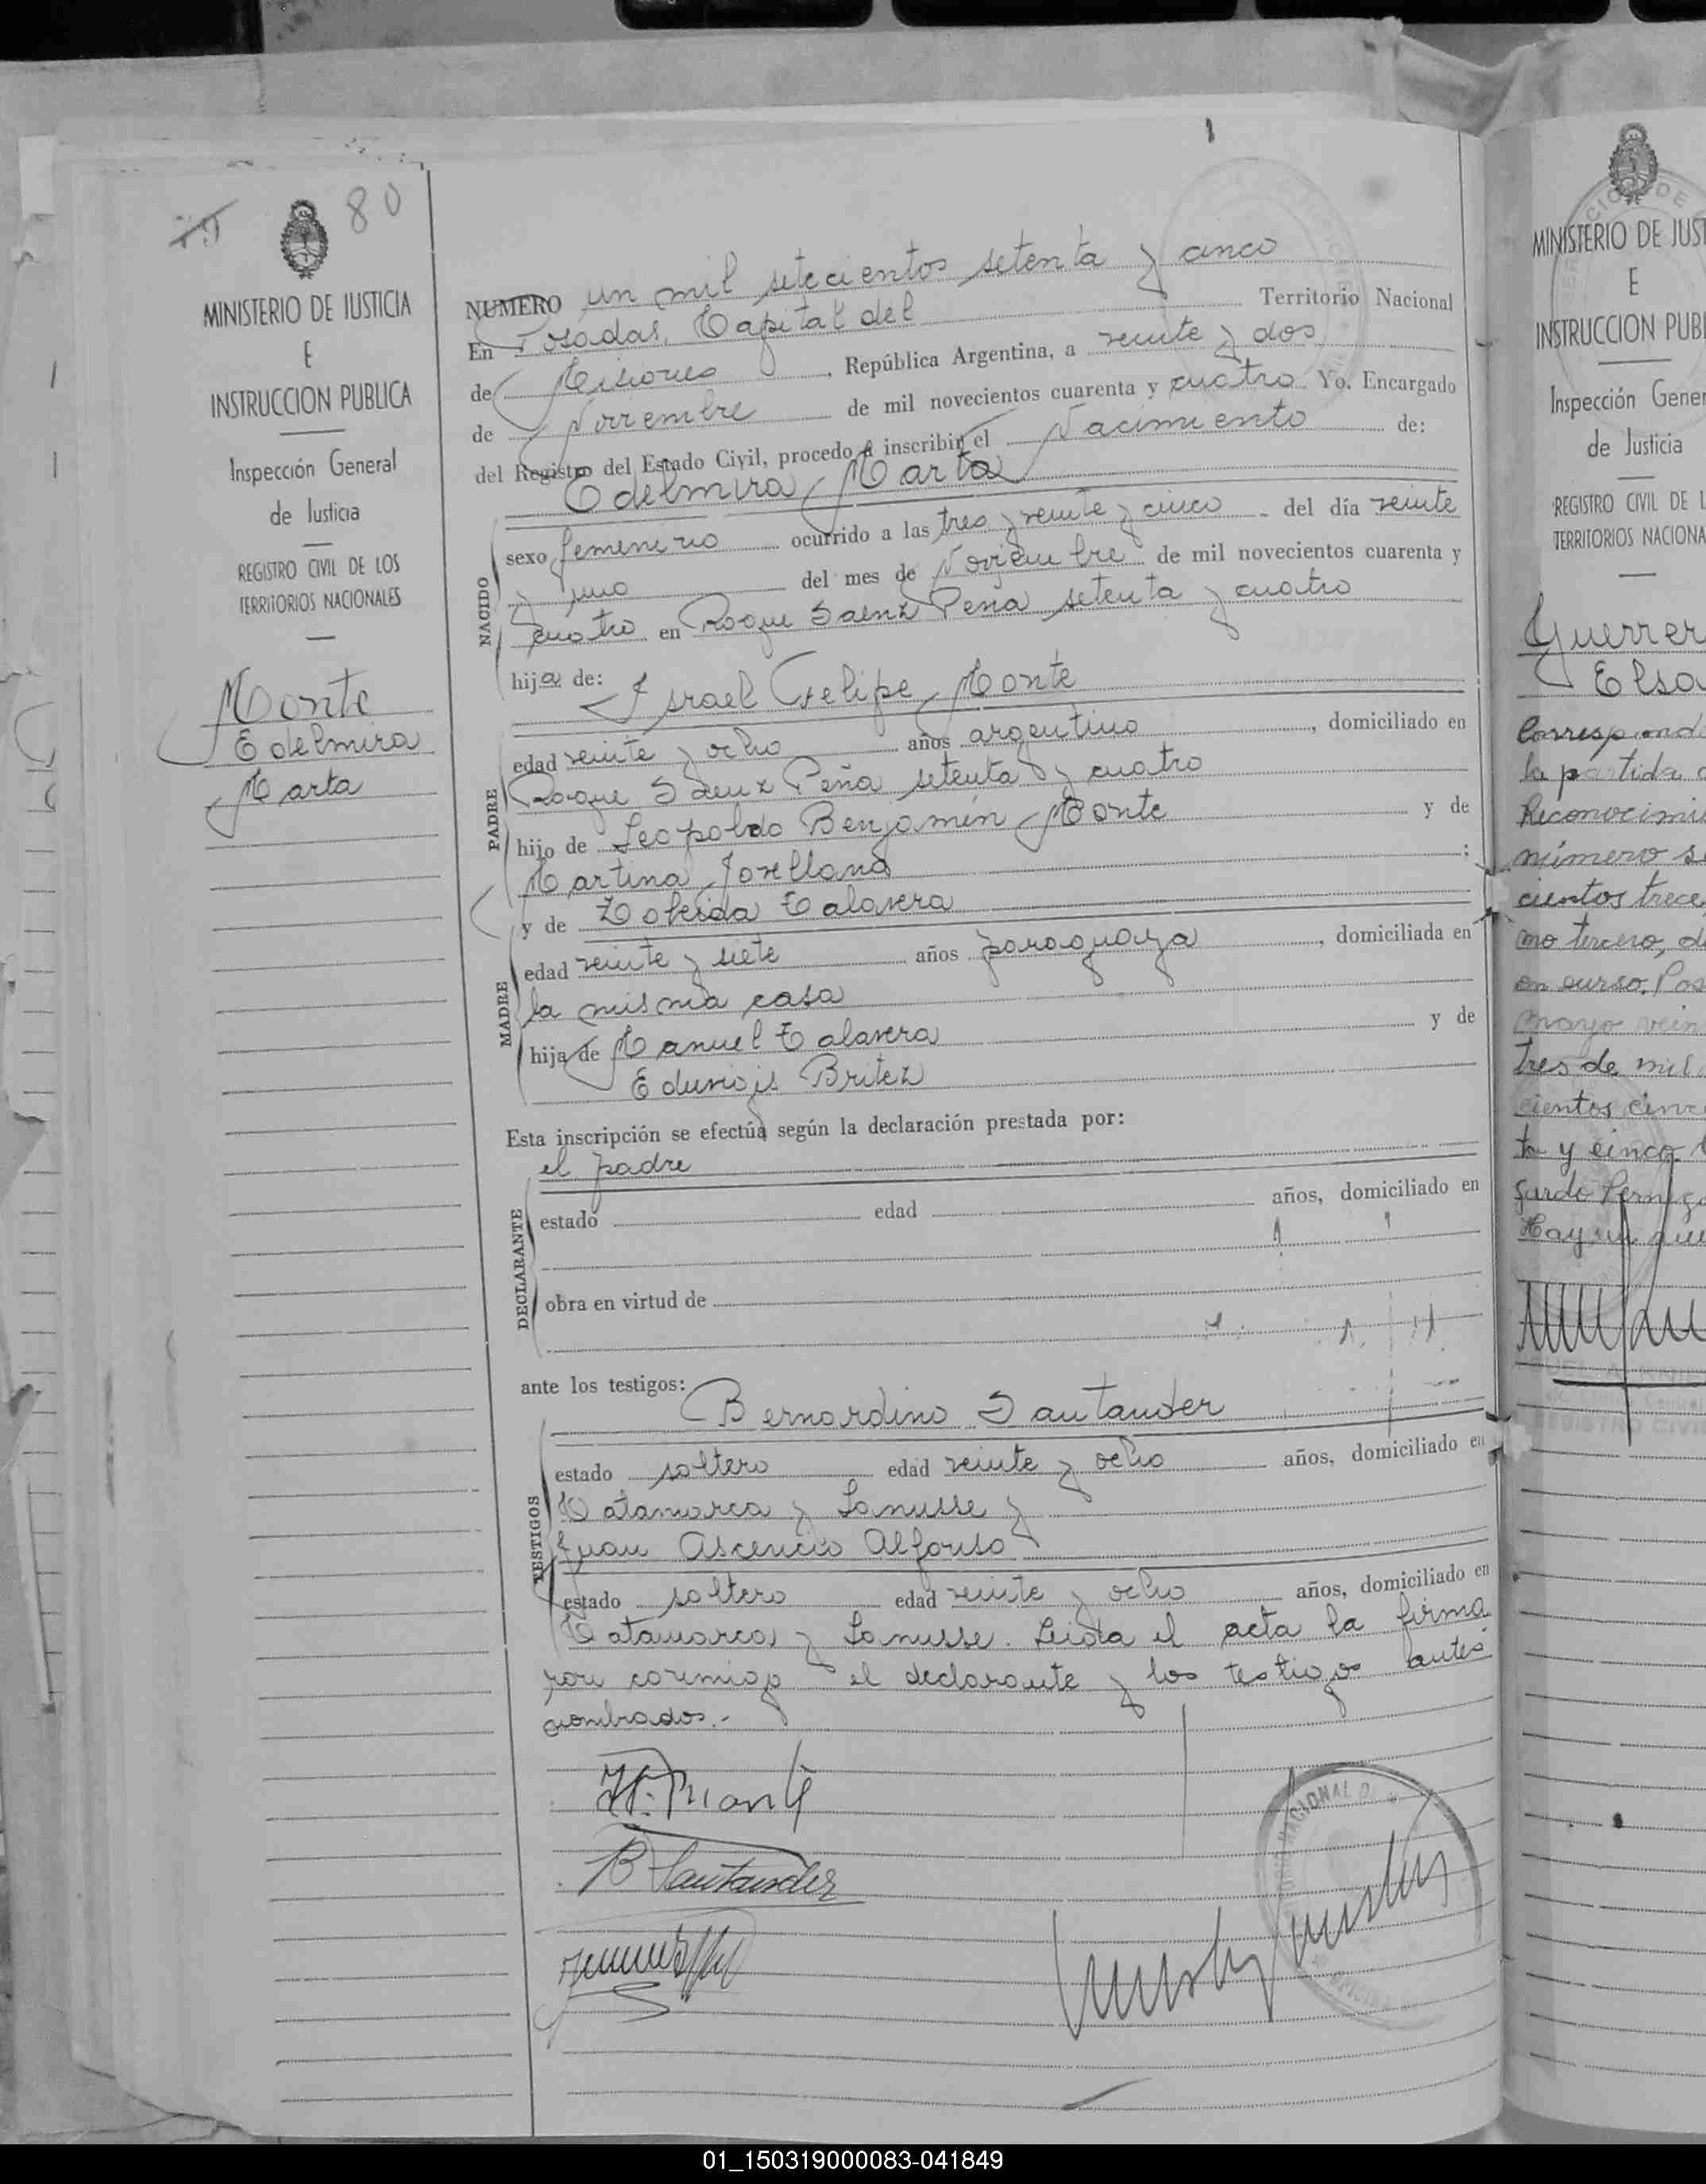 80
MINISTERIO DE JUSTICIA
E
INSTRUCCION PUBLICA
Inspección General
de Justicia
REGISTRO CIVIL DE LOS
TERRITORIOS NACIONALES
Monte
Edelmira
Marta
NUMERO un mil setecientos setenta y cinco
En Posadas, Capital del Territorio Nacional
de Misiones, República Argentina, a veinte y dos
de Noviembre de mil novecientos cuarenta y cuatro. Yo, Encargado
del Registro del Estado Civil, procedo a inscribir el Nacimiento de:
Edelmira Marta
NACIDO
sexo femenino ocurrido a las tres y veinte y cinco del día veinte
y uno del mes de Noviembre de mil novecientos cuarenta y
cuatro en Roque Saenz Peña setenta y cuatro
hija de:
Israel Felipe Monte
PADRE
edad veinte y ocho años argentino, domiciliado en
Roque Saenz Peña setenta y cuatro
hijo de Leopoldo Benjamín Monte y de
Martina Jorellana:
y de Zobeida Talavera
MADRE
edad veinte y siete años paraguaya, domiciliada en
la misma casa
hija de Manuel Talavera y de
Eduvigis Britez
Esta inscripción se efectúa según la declaración prestada por:
el padre
DECLARANTE
estado edad años, domiciliado en
obra en virtud de
ante los testigos:
Bernardino Santander
TESTIGOS
estado soltero edad veinte y ocho años, domiciliado en
Catamarca y Lanusse y
Juan Ascencio Alfonso
estado soltero edad veinte y ocho años, domiciliado en
Catamarca y Lanusse. Leida el acta la firma
ron conmigo el declarante y los testigos antes
nombrados.-
B Santander
MINISTERIO DE JUST
E
INSTRUCCION PUBL
Inspección Gener
de Justicia
REGISTRO CIVIL DE L
TERRITORIOS NACIONA
Guerrer
Elsa
Correspond
la partida
Reconocimi
número se
cientos trece
mo tercero, d
en curso. Pos
mayo vein
tres de mil
cientos cinc
ta y cinco
01_150319000083-041849